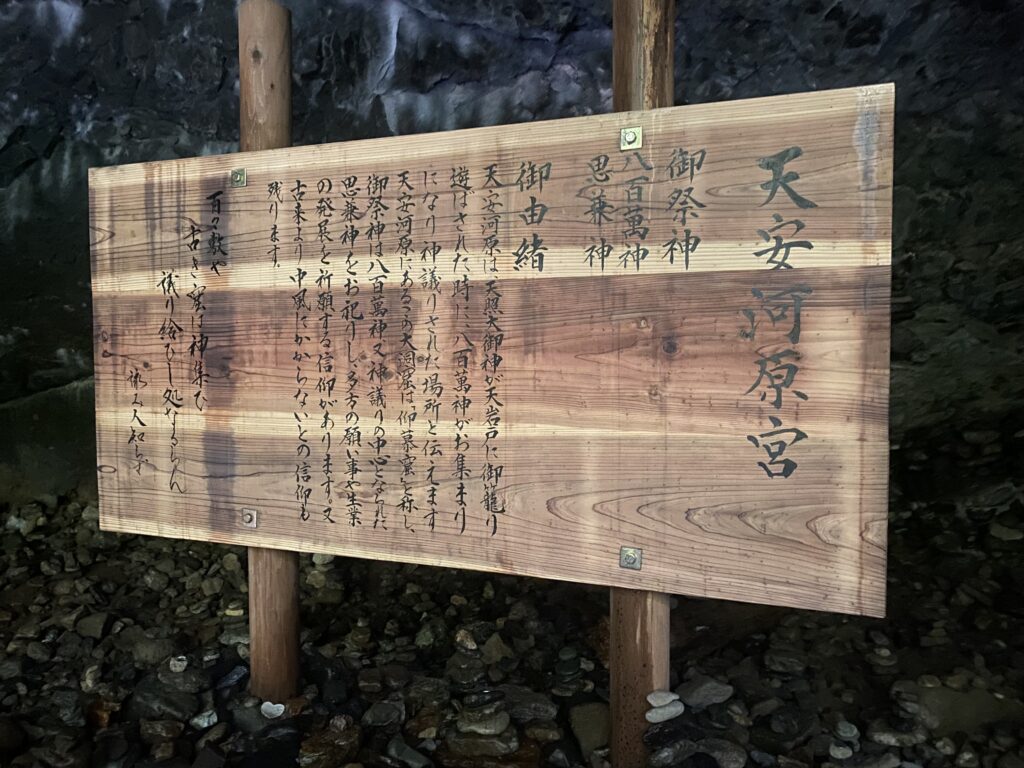 天安河原宮
御祭神
八百萬神
思兼神
御由緒
天安河原は天照大御神が天岩戸に御籠り
遊ばされた時に、八百萬神がお集まり
になり神議りされた場所と伝えます
天安河原にあるこの大洞窟は、仰慕窟と称し、
御祭神は八百萬神又神議りの中心となられた
思兼神をお祀りし、多方の願い事や生業
の発展を祈願する信仰があります。又
古来より中風にかからないとの信仰も
残ります。
百々敷や
古き窟は神集ひ
議り給ひし処なるらん
詠み人知らず